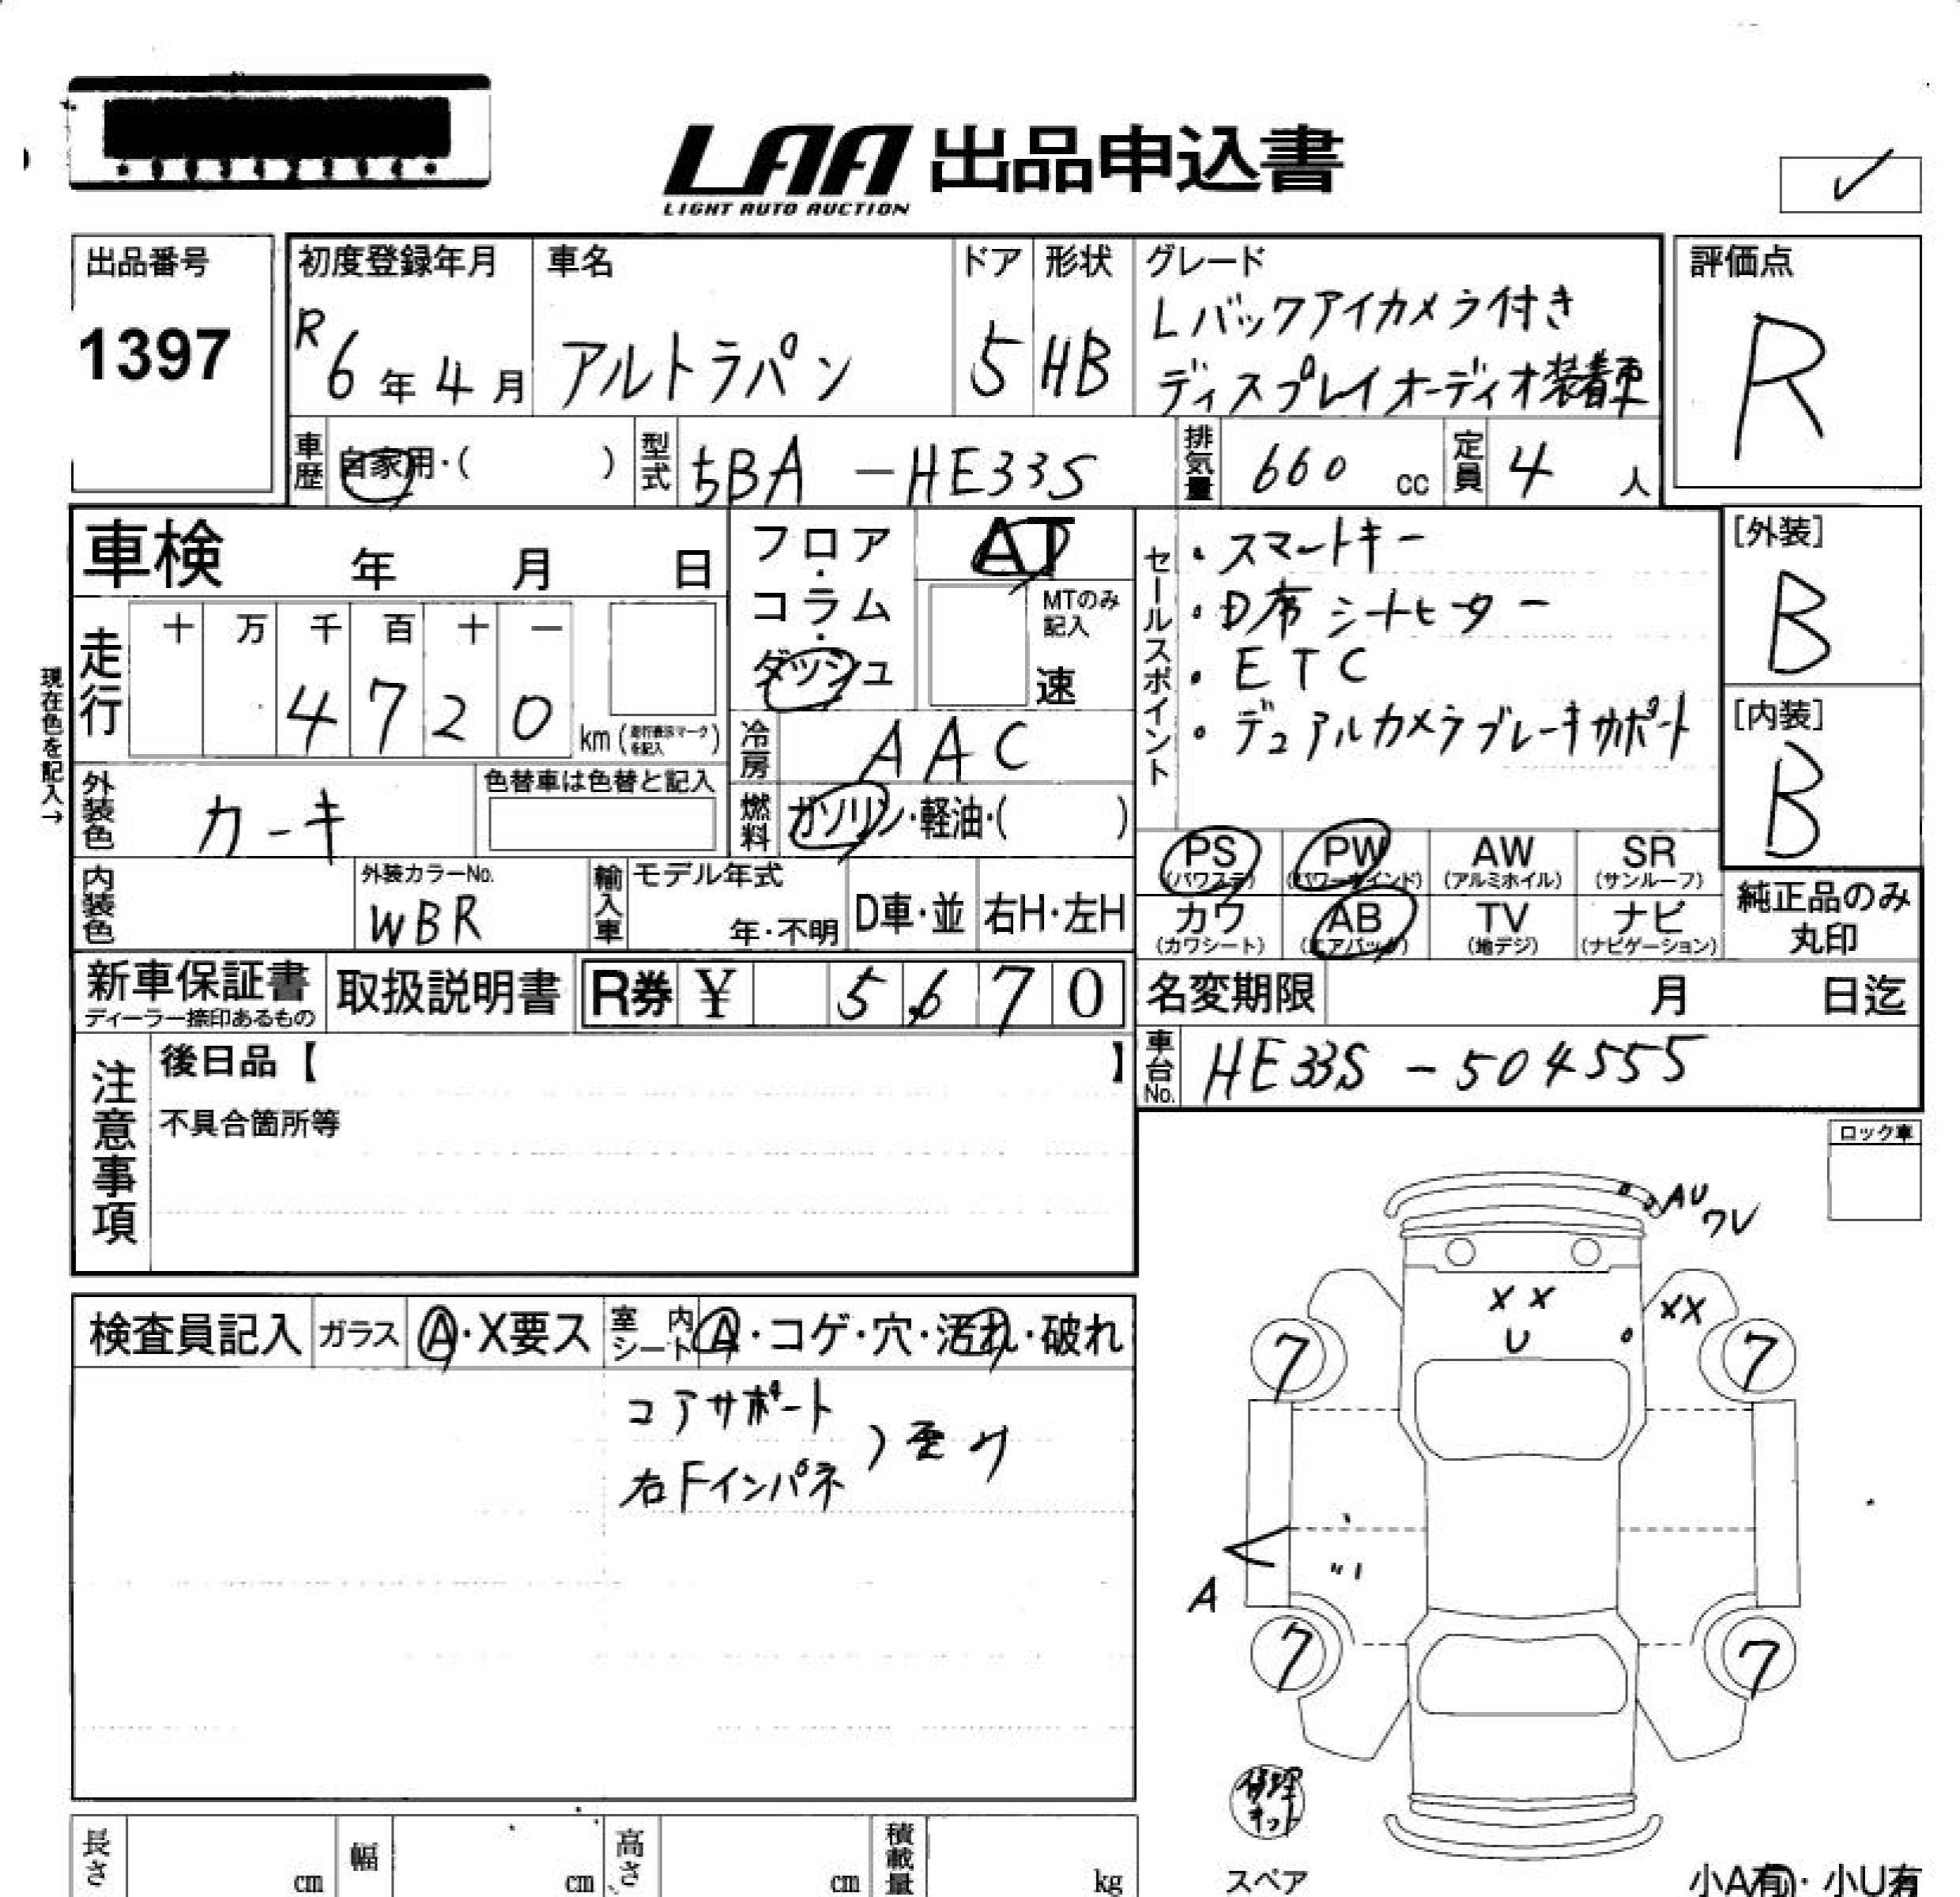 LAA 出品申込書
LIGHT AUTO AUCTION
出品番号
1397
初度登録年月
R6年4月
車名
アルトラパン
ドア
5
形状
HB
グレード
Lバックアイカメラ付き
ディスプレイオーディオ装着車
評価点
R
車歴
自家用・( )
型式
5BA-HE33S
排気量
660 cc
定員
4人
車検 年 月 日
フロア・コラム・ダッシュ
AT
MTのみ記入
速
走行
十 万 千 百 十 一
4 7 2 0 km(走行表示マークを記入)
現在色を記入→
冷房
AAC
外装色
カーキ
色替車は色替と記入
燃料
ガソリン・軽油・( )
内装色
外装カラーNo.
WBR
輸入車
モデル年式
年・不明
D車・並
右H・左H
セールスポイント
・スマートキー
・D席シートヒーター
・ETC
・デュアルカメラブレーキサポート
[外装]
B
[内装]
B
PS (パワステ)
PW (パワーウインド)
AW (アルミホイル)
SR (サンルーフ)
カワ (カワシート)
AB (エアバック)
TV (地デジ)
ナビ (ナビゲーション)
純正品のみ丸印
新車保証書
ディーラー捺印あるもの
取扱説明書
R券 ¥ 5,670
名変期限 月 日迄
車台No.
HE33S-504555
注意事項
後日品【 】
不具合箇所等
ロック車
検査員記入
ガラス
A・X要ス
室内シート
A・コゲ・穴・汚れ・破れ
コアサポート
右Fインパネ
)歪み
AU
ワレ
X X
U
XX
7
7
A
7
7
修理キット
スペア
小A有・小U有
長さ cm
幅 cm
高さ cm
積載量 kg